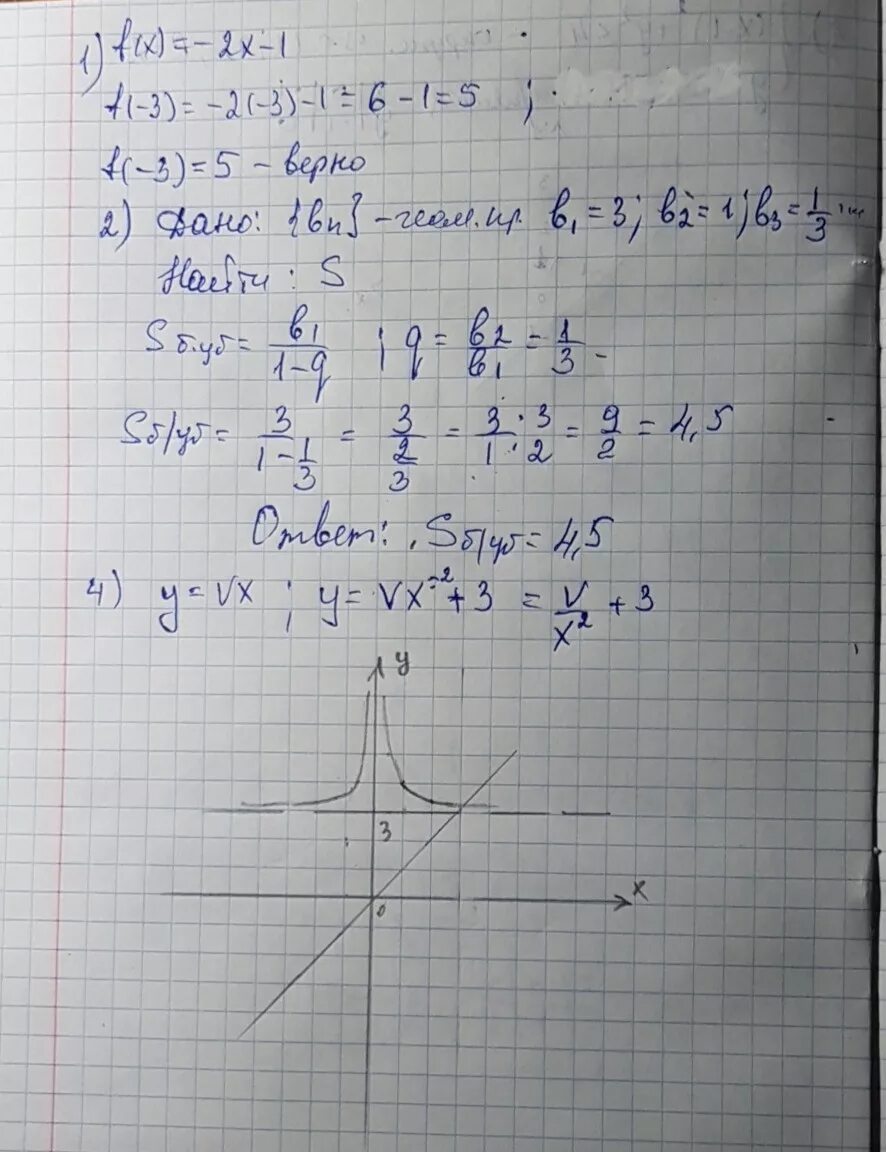 1) f(x) = -2x-1
f(-3) = -2(-3)-1 = 6-1=5 ;
f(-3) = 5 - верно
2) Дано: {bn} - геом. пр. b₁ = 3; b₂ = 1; b₃ = 1/3 ...
Найти : S
S б.уб = b₁/(1-q) ; q = b₂/b₁ = 1/3
Sб/уб = 3/(1-1/3) = 3/(2/3) = (3·3)/(1·2) = 9/2 = 4,5
Ответ: Sб/уб = 4,5
4) y = Vx ; y = Vx⁻² + 3 = V/x² + 3
y
3
x
0